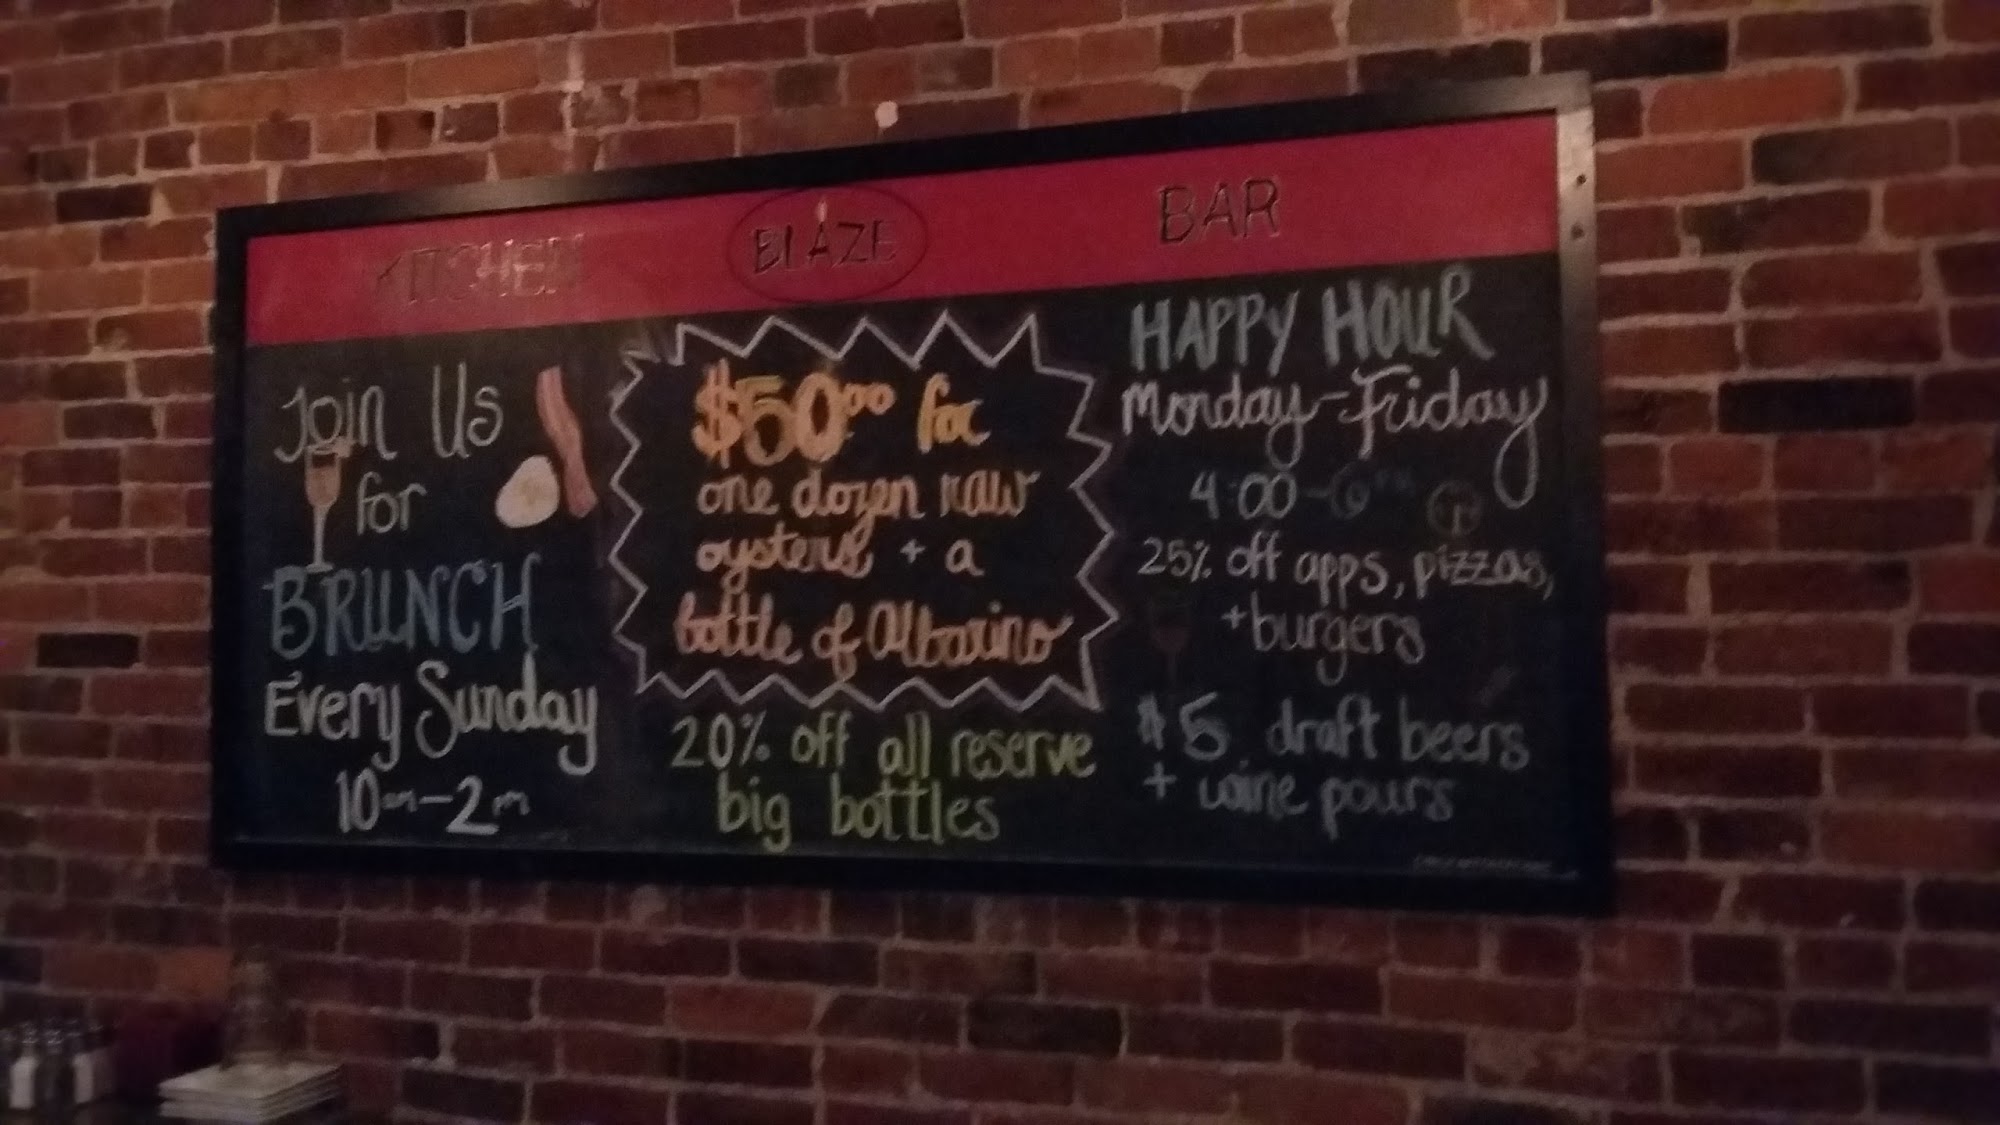 KITCHEN
BLAZE
BAR
Join Us
for
BRUNCH
Every Sunday
10am-2pm
$50.00 for
one dozen raw
oysters + a
bottle of Albarino
20% off all reserve
big bottles
HAPPY HOUR
Monday-Friday
4:00-6PM
25% off apps, pizzas,
+burgers
$5 draft beers
+ wine pours